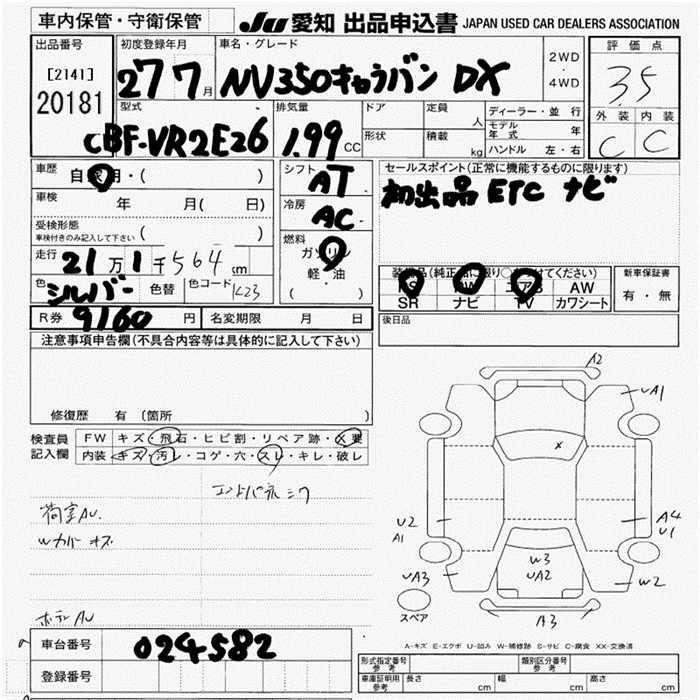 車内保管・守衛保管
JU 愛知 出品申込書 JAPAN USED CAR DEALERS ASSOCIATION
出品番号
[2141]
20181
初度登録年月
27 7月
車名・グレード
NV350キャラバン DX
2WD
・
4WD
評価点
3.5
外装 内装
C C
型式
CBF-VR2E26
排気量
1.99 CC
ドア
形状
定員
人
積載
kg
ディーラー・並行
モデル年式 年
ハンドル 左・右
車歴
自家用・( )
車検
年 月( 日)
受検形態
車検付きのみ記入して下さい ( )
走行
21万1千564km
色
シルバー
色替
色コード
K23
シフト
AT
冷房
AC
燃料
ガソリン
軽・油
( )
セールスポイント(正常に機能するものに限ります)
初出品 ETC ナビ
装備品(純正品に限り○をつけてください)
PS PW エアB AW
SR ナビ TV カワシート
新車保証書
有・無
R券 9160 円
名変期限 月 日
後日品
注意事項申告欄(不具合内容等は具体的に記入して下さい)
修復歴 有 (箇所 )
検査員
記入欄
FW キズ・飛石・ヒビ割・リペア跡・X要
内装 キズ・汚レ・コゲ・穴・スレ・キレ・破レ
エンドパネルシワ
荷室AU.
Wカバーキズ
ボディAU
A2
UA1
X
U2
A1
A4
U1
W3
UA2
UA3
W2
スペア
A3
A-キズ E-エクボ U-凹み W-補修跡 S-サビ C-腐食 XX-交換済
車台番号
024582
登録番号
形式指定番号
参考
類別区分番号
参考
車庫証明用
参考
長さ cm
幅 cm
高さ cm